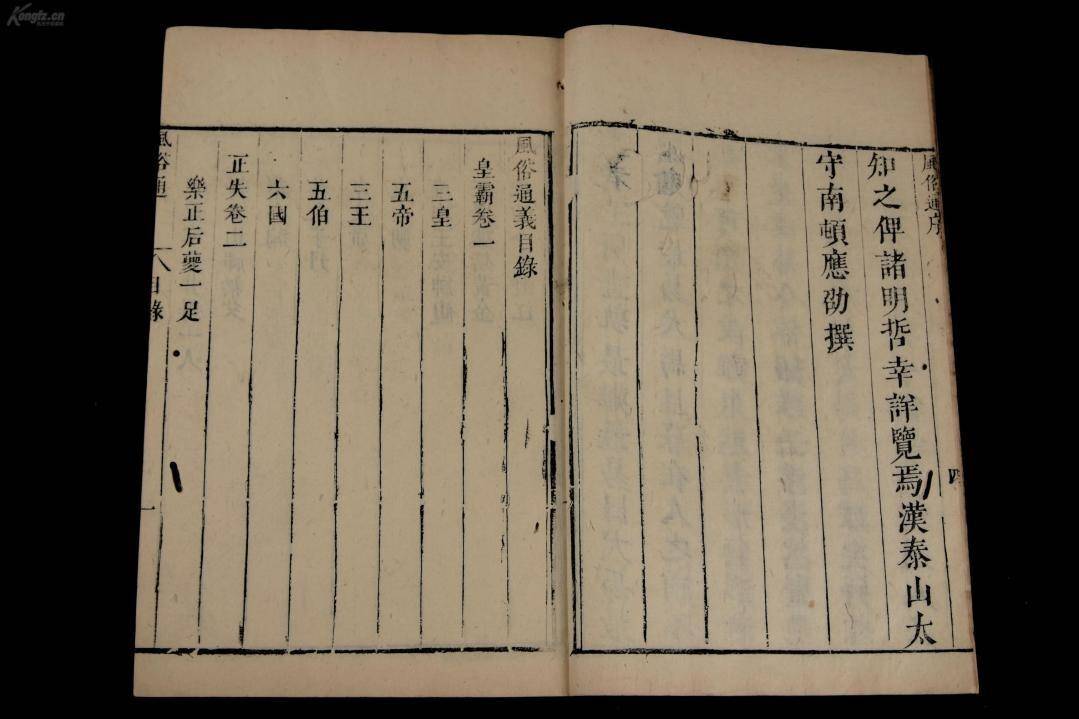 Kongfz.cn
風俗通序
知之俾諸明哲幸詳覽焉漢泰山太
守南頓應劭撰
四
風俗通義目錄
皇霸卷一
三皇
五帝
三王
五伯
六國
正失卷二
樂正后夔一足
風俗通
目錄
一